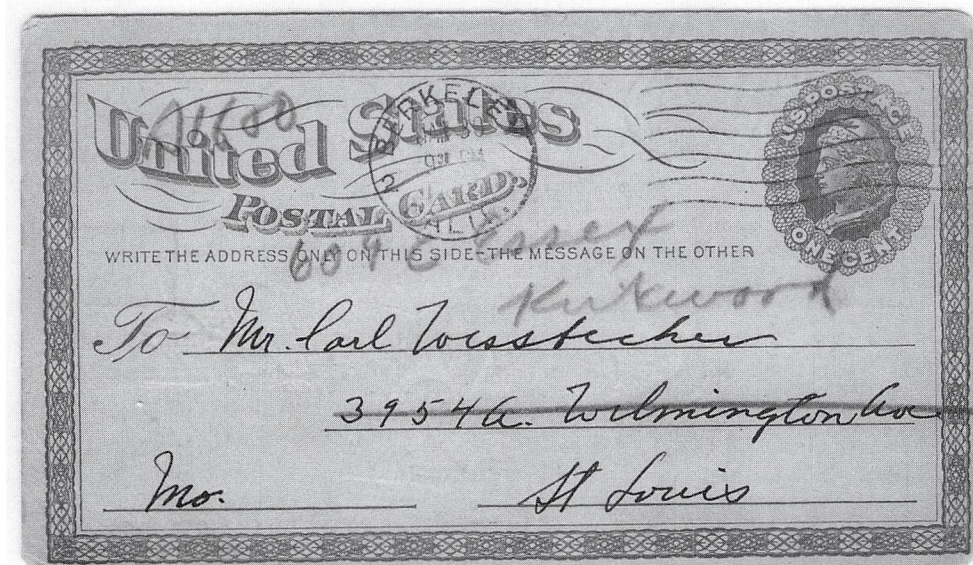 United States
A1600
POSTAL CARD.
BERKELEY
2
CALIF.
U.S. POSTAGE
ONE CENT
WRITE THE ADDRESS ONLY ON THIS SIDE-THE MESSAGE ON THE OTHER
609 E Essex
Kirkwood
To Mr. Carl
3954A. Wilmington Ave
Mo. St Louis